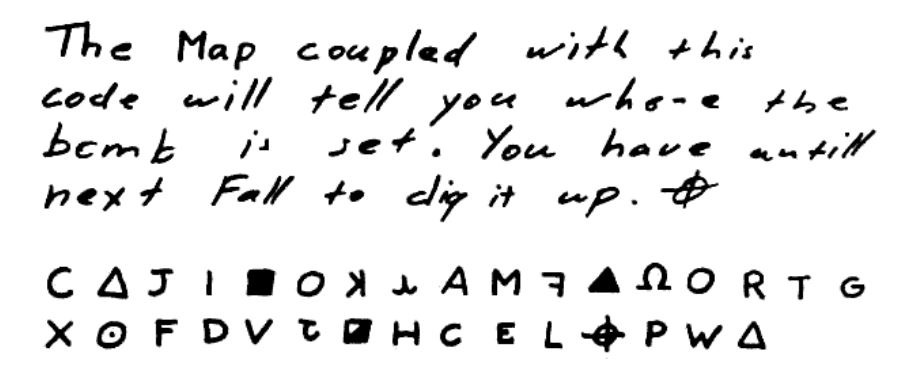 The Map coupled with this
code will tell you where the
bomb is set. You have untill
next Fall to dig it up. ⌖
C Δ J I ■ O ꓘ A M ꟻ ▲ Ω O R T G
X ⊙ F D V ◪ H C E L ⌖ P W Δ